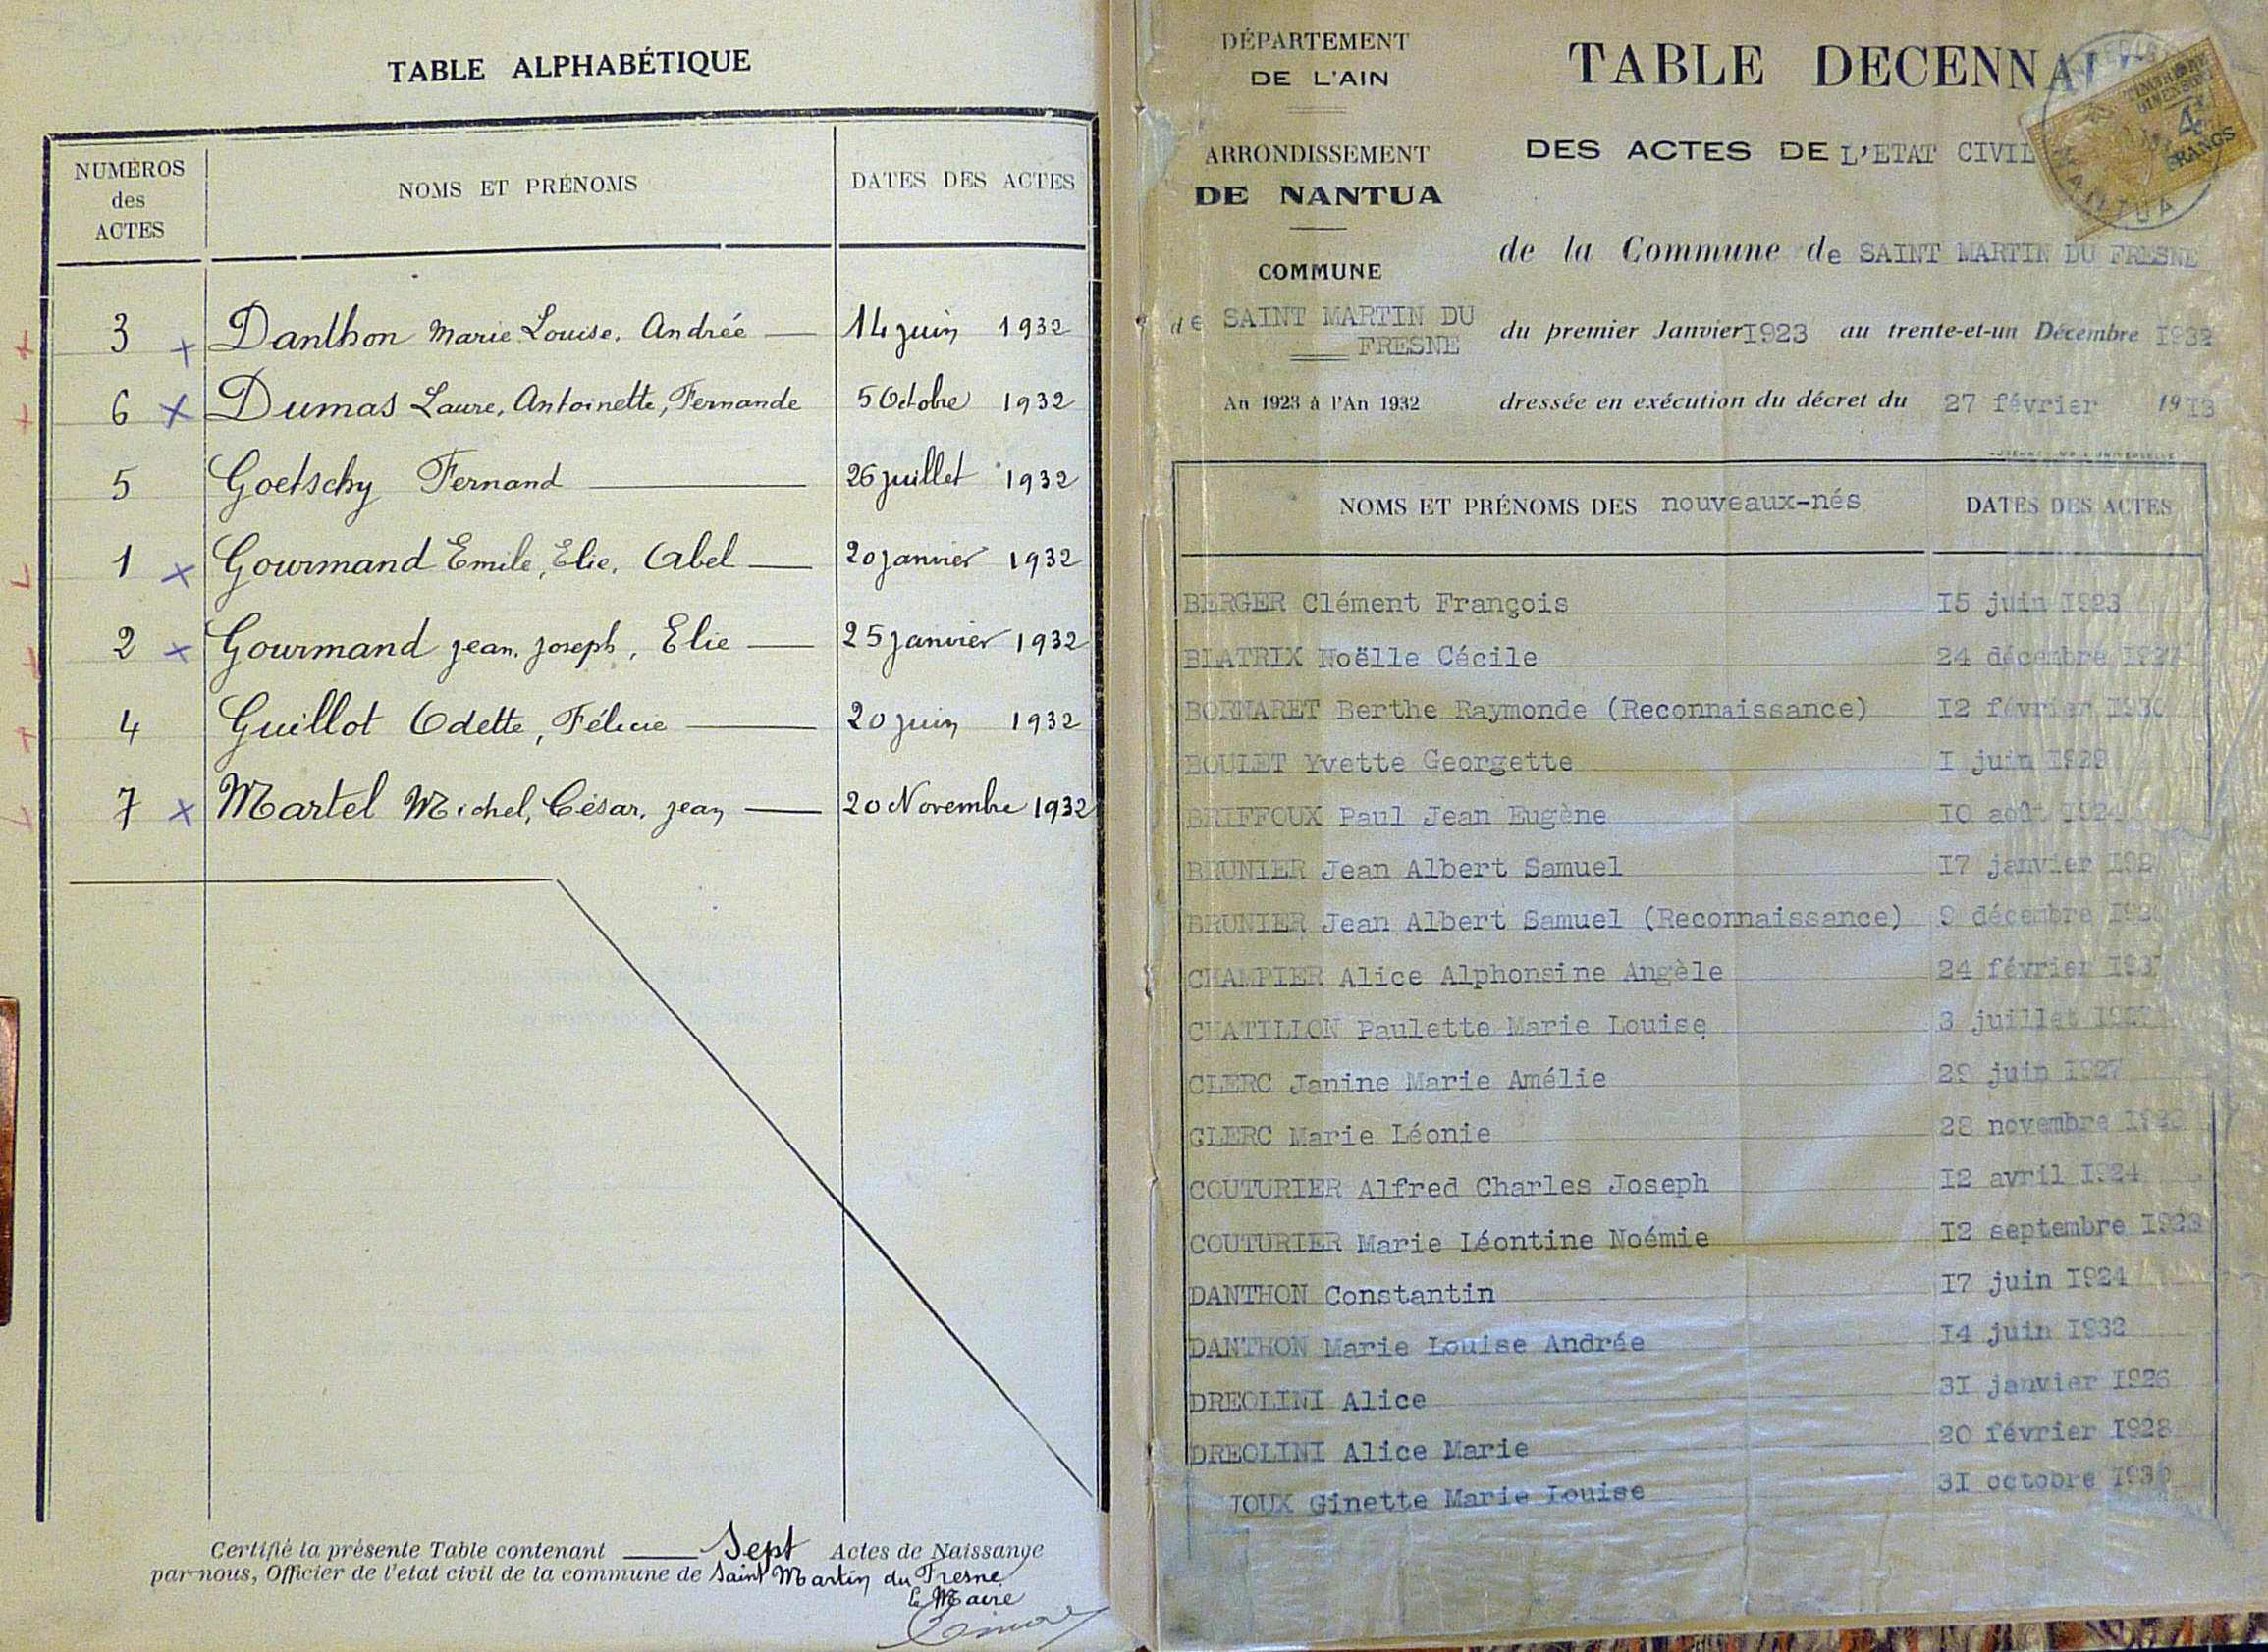 TABLE ALPHABÉTIQUE
NUMÉROS des ACTES NOMS ET PRÉNOMS DATES DES ACTES
3 Danthon Marie Louise, Andrée 14 juin 1932
6 Dumas Laure, Antoinette, Fernande 5 Octobre 1932
5 Goetschy Fernand 26 juillet 1932
1 Gourmand Emile, Elie, Abel 20 janvier 1932
2 Gourmand jean, joseph, Elie 25 janvier 1932
4 Guillot Odette, Félicie 20 juin 1932
7 Martel Michel, César, jean 20 Novembre 1932
Certifié la présente Table contenant Sept Actes de Naissance
par nous, Officier de l'etat civil de la commune de Saint Martin du Fresne
Le Maire
DÉPARTEMENT
DE L'AIN
ARRONDISSEMENT
DE NANTUA
COMMUNE
de SAINT MARTIN DU
FRESNE
An 1923 à l'An 1932
TABLE DECENNA
DES ACTES DE L'ETAT CIVIL
de la Commune de SAINT MARTIN DU FRESNE
du premier Janvier I923 au trente-et-un Décembre I932
dressée en exécution du décret du 27 février 19I3
TIMBRE DE
DIMENSION
4
FRANCS
NANTUA
NOMS ET PRÉNOMS DES nouveaux-nés DATES DES ACTES
BERGER Clément François I5 juin I923
BLATRIX Noëlle Cécile 24 décembre
BORNARET Berthe Raymonde (Reconnaissance) I2 février
BOULET Yvette Georgette I juin
BRIFFOUX Paul Jean Eugène IO août I924
BRUNIER Jean Albert Samuel I7 janvier
BRUNIER Jean Albert Samuel (Reconnaissance) 9 décembre
CHAMPIER Alice Alphonsine Angèle 24 février
CHATILLON Paulette Marie Louise 3 juillet I927
CLERC Janine Marie Amélie 29 juin I927
CLERC Marie Léonie 28 novembre
COUTURIER Alfred Charles Joseph I2 avril I924
COUTURIER Marie Léontine Noémie I2 septembre
DANTHON Constantin I7 juin I924
DANTHON Marie Louise Andrée I4 juin I932
DREOLINI Alice 3I janvier I926
DREOLINI Alice Marie 20 février I928
JOUX Ginette Marie Louise 3I octobre